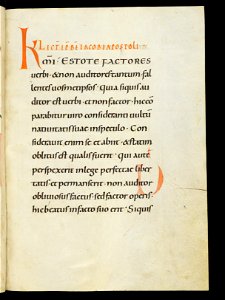 LECT EPIST BEATI IACOBI APOSTOLI
ESTOTE FACTORES
verbi & non auditores tantum fal
lentes uosmetipsos Quia si quis au
ditor est uerbi et non factor hic con
parabitur uiro consideranti uultu
natiuitatis suae in speculo Con
siderauit enim se et abiit & statim
oblitus est qualis fuerit Qui aute
perspexerit in lege perfectae liber
tatis et permanserit non auditor
obliuiosus factus sed factor operis
hic beatus in facto suo erit Si quis